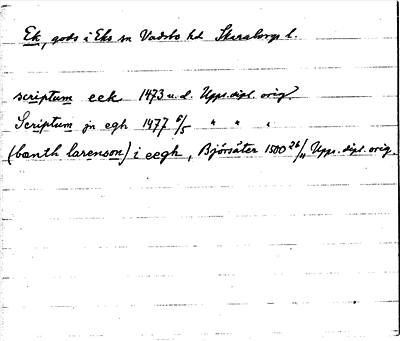 Ek, gods i Eks sn Vadsbo hd Skaraborgs l.
scriptum eek 1473 u.d. Upps. dipl. orig.
Scriptum jn egh 1477 6/5 " " "
(banth larenson) i eegh, Björsäter 1500 26/11 Upps. dipl. orig.